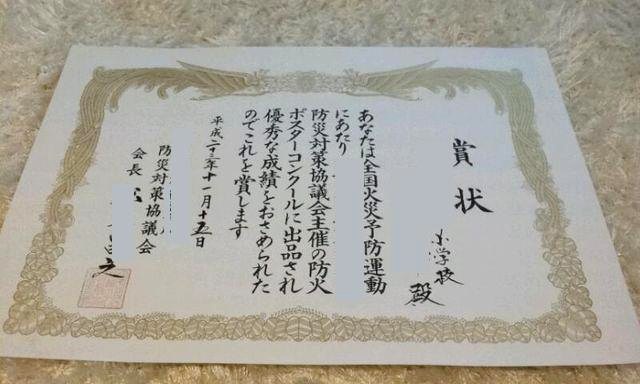 賞状
小学校
殿
あなたは全国火災予防運動
にあたり
防災対策協議会主催の防火
ポスターコンクールに出品され
優秀な成績をおさめられた
のでこれを賞します
平成二十三年十一月十五日
防災対策協議会
会長
之